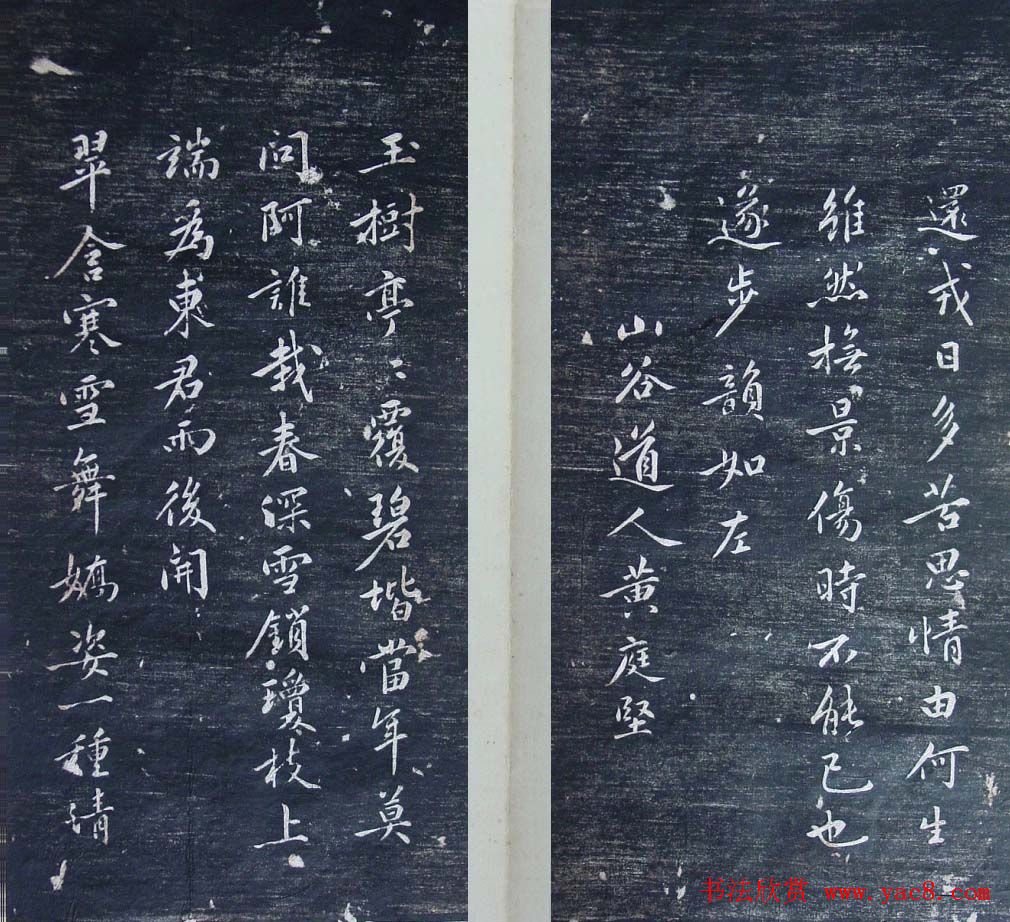 還戎日多苦思情由何生
雖然撫景傷時不能已也
遂步韻如左
山谷道人黄庭堅
玉樹亭〻覆碧堦當年莫
問阿誰栽春深雪鎖瓊枝上
端為東君雨後開
翠含寒雪舞嬌姿一種清
书法欣赏 www.yac8.com